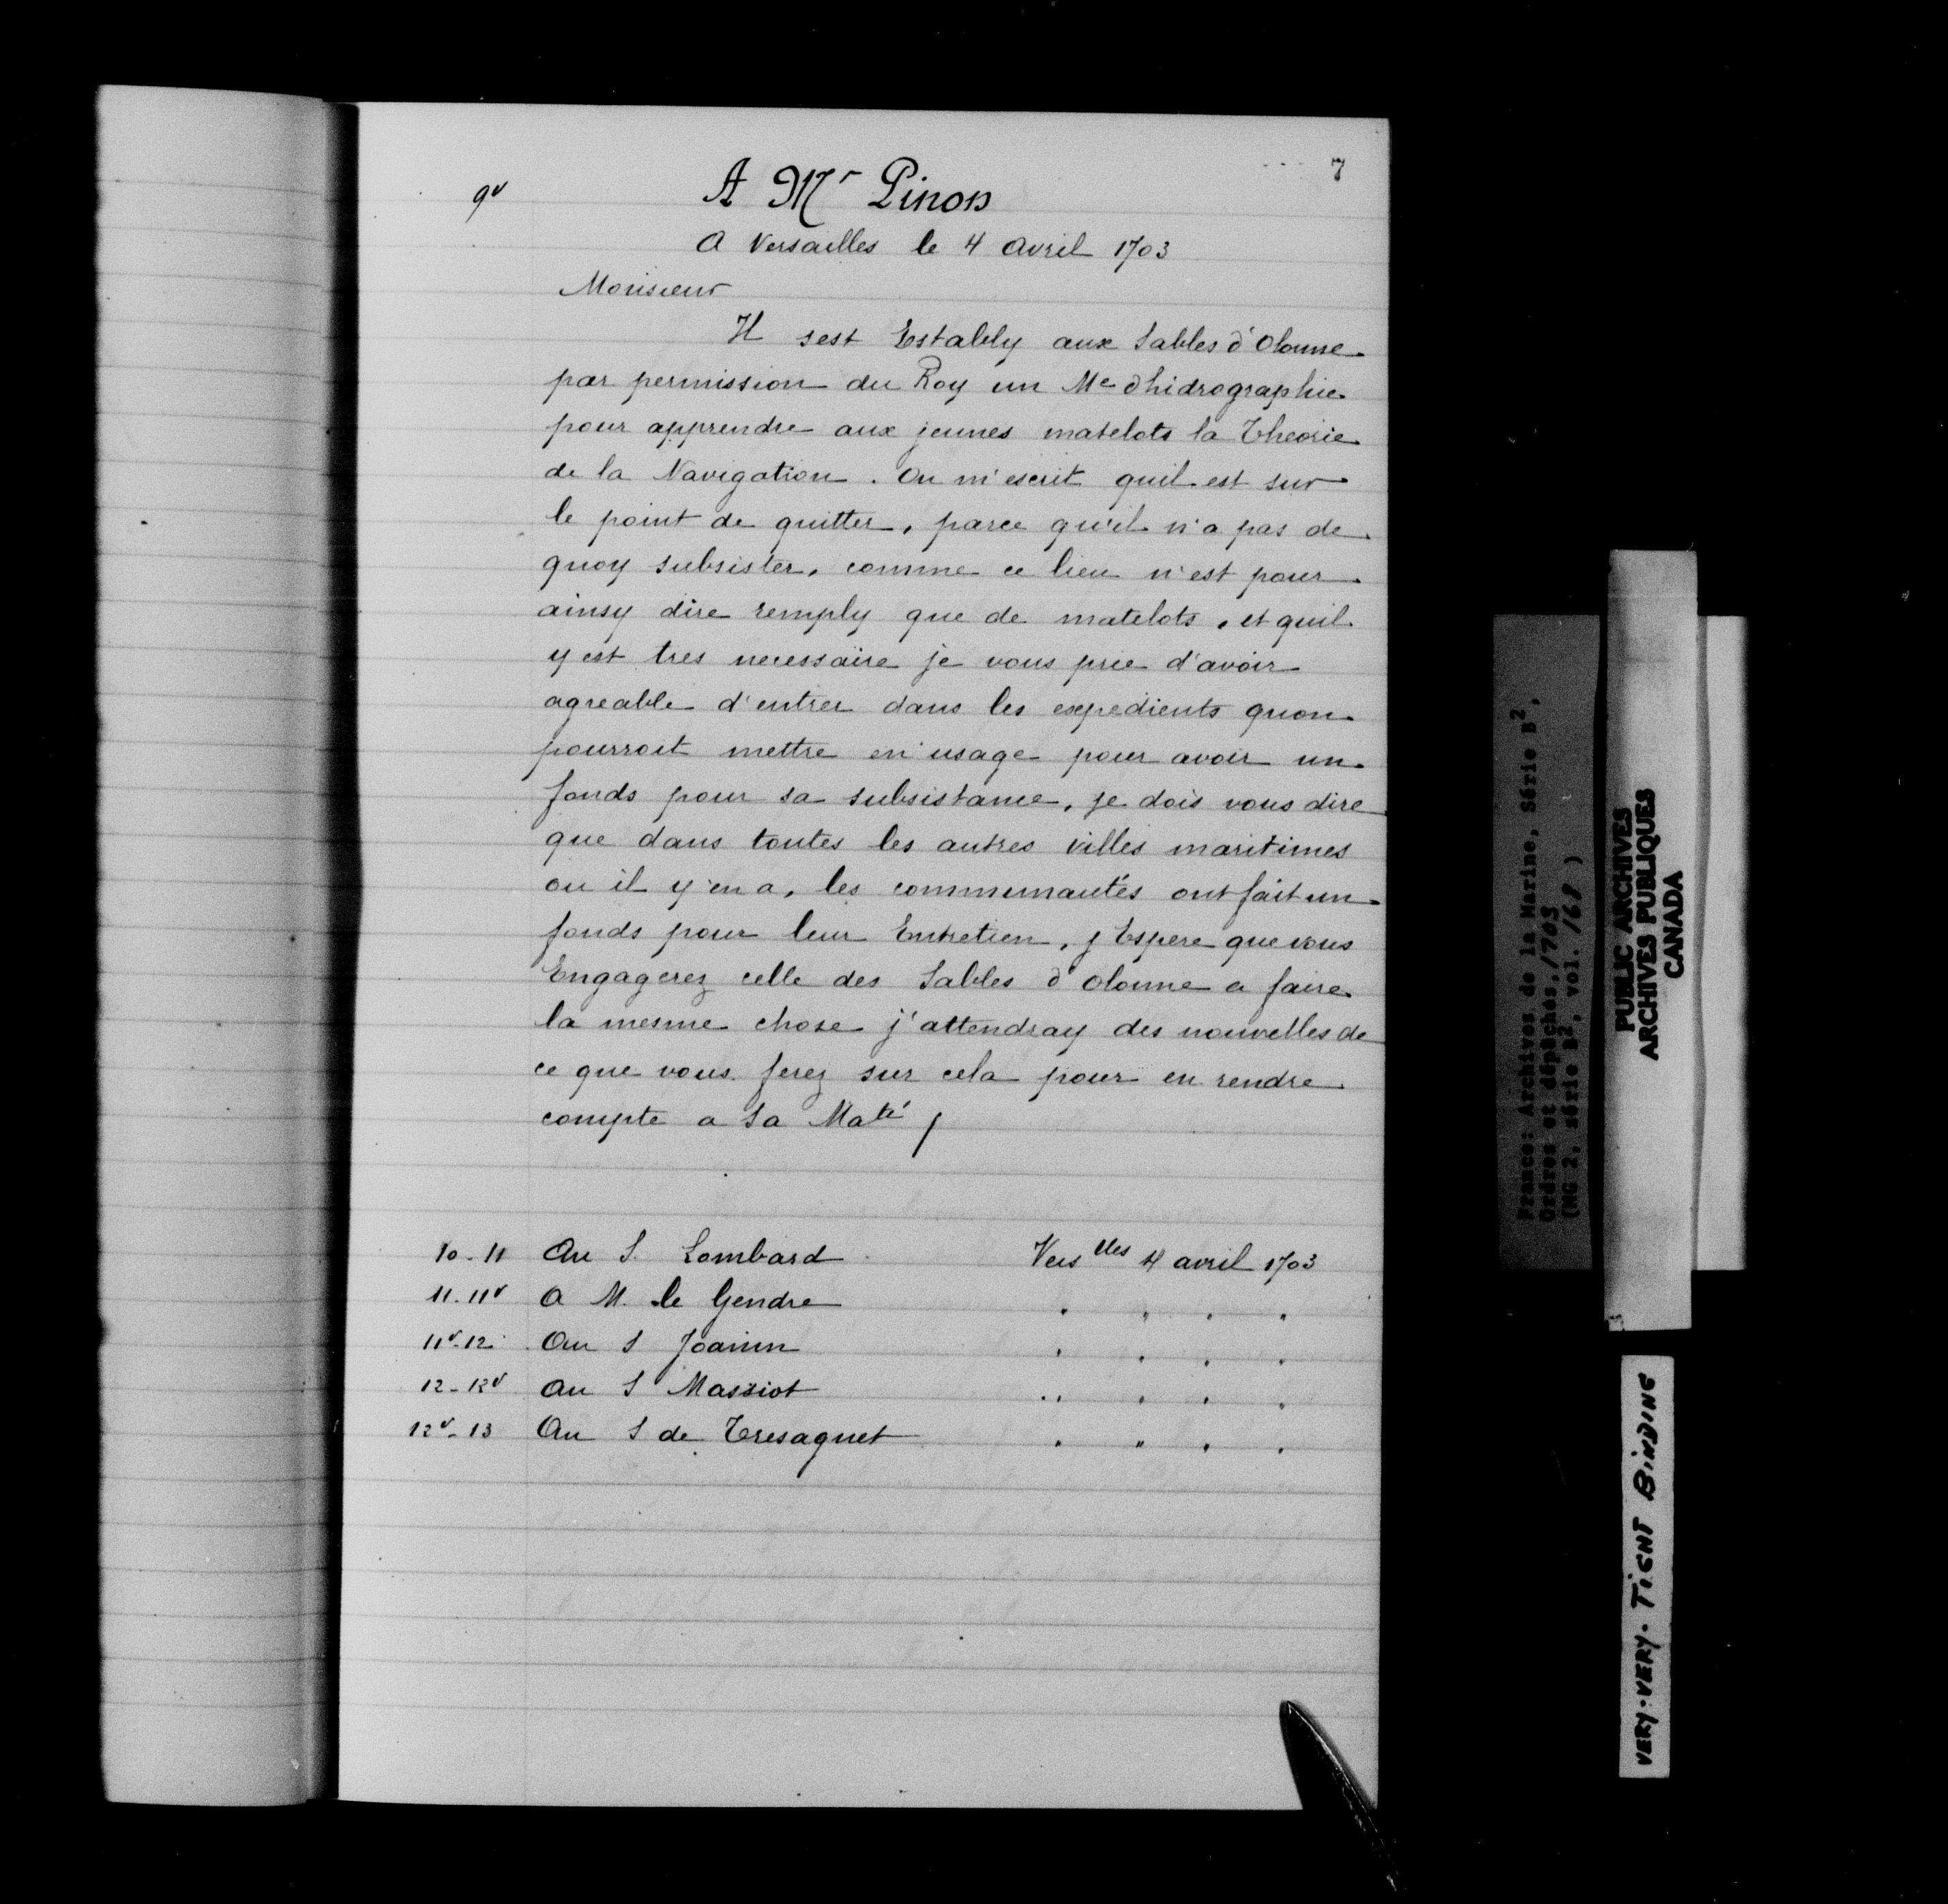 7
9v
A Mr Pinon
A Versailles le 4 Avril 1703
Monsieur
Il sest Establly aux Sables d'Olonne
par permission du Roy un Me dhidrographie
pour apprendre aux jeunes matelots la Theorie
de la Navigation. On m'escrit quil est sur
le point de quitter, parce qu'il n'a pas de
quoy subsister, comme ce lieu n'est pour
ainsy dire remply que de matelots, et quil
y est tres necessaire je vous prie d'avoir
agreable d'entrer dans les expedients quon
pourroit mettre en usage pour avoir un
fonds pour sa subsistance, je dois vous dire
que dans toutes les autres villes maritimes
ou il y en a, les communautés ont fait un
fonds pour leur Entretien, j Espere que vous
Engagerez celle des Sables d'olonne a faire
la mesme chose j'attendray des nouvelles de
ce que vous ferez sur cela pour en rendre
compte a Sa Maté /
10-11 Au S. Lombard Verslles 4 avril 1703
11-11v A M. le Gendre " " " "
11v-12 Au S Joanin " " " "
12-12v Au S Massiot " " " "
12v-13 Au S de Tresaguet " " " "
France: Archives de la Marine, Série B2,
Ordres et dépêches, 1703
(MG 2, série B2, vol. 168)
PUBLIC ARCHIVES
ARCHIVES PUBLIQUES
CANADA
VERY-VERY-TIGHT BINDING